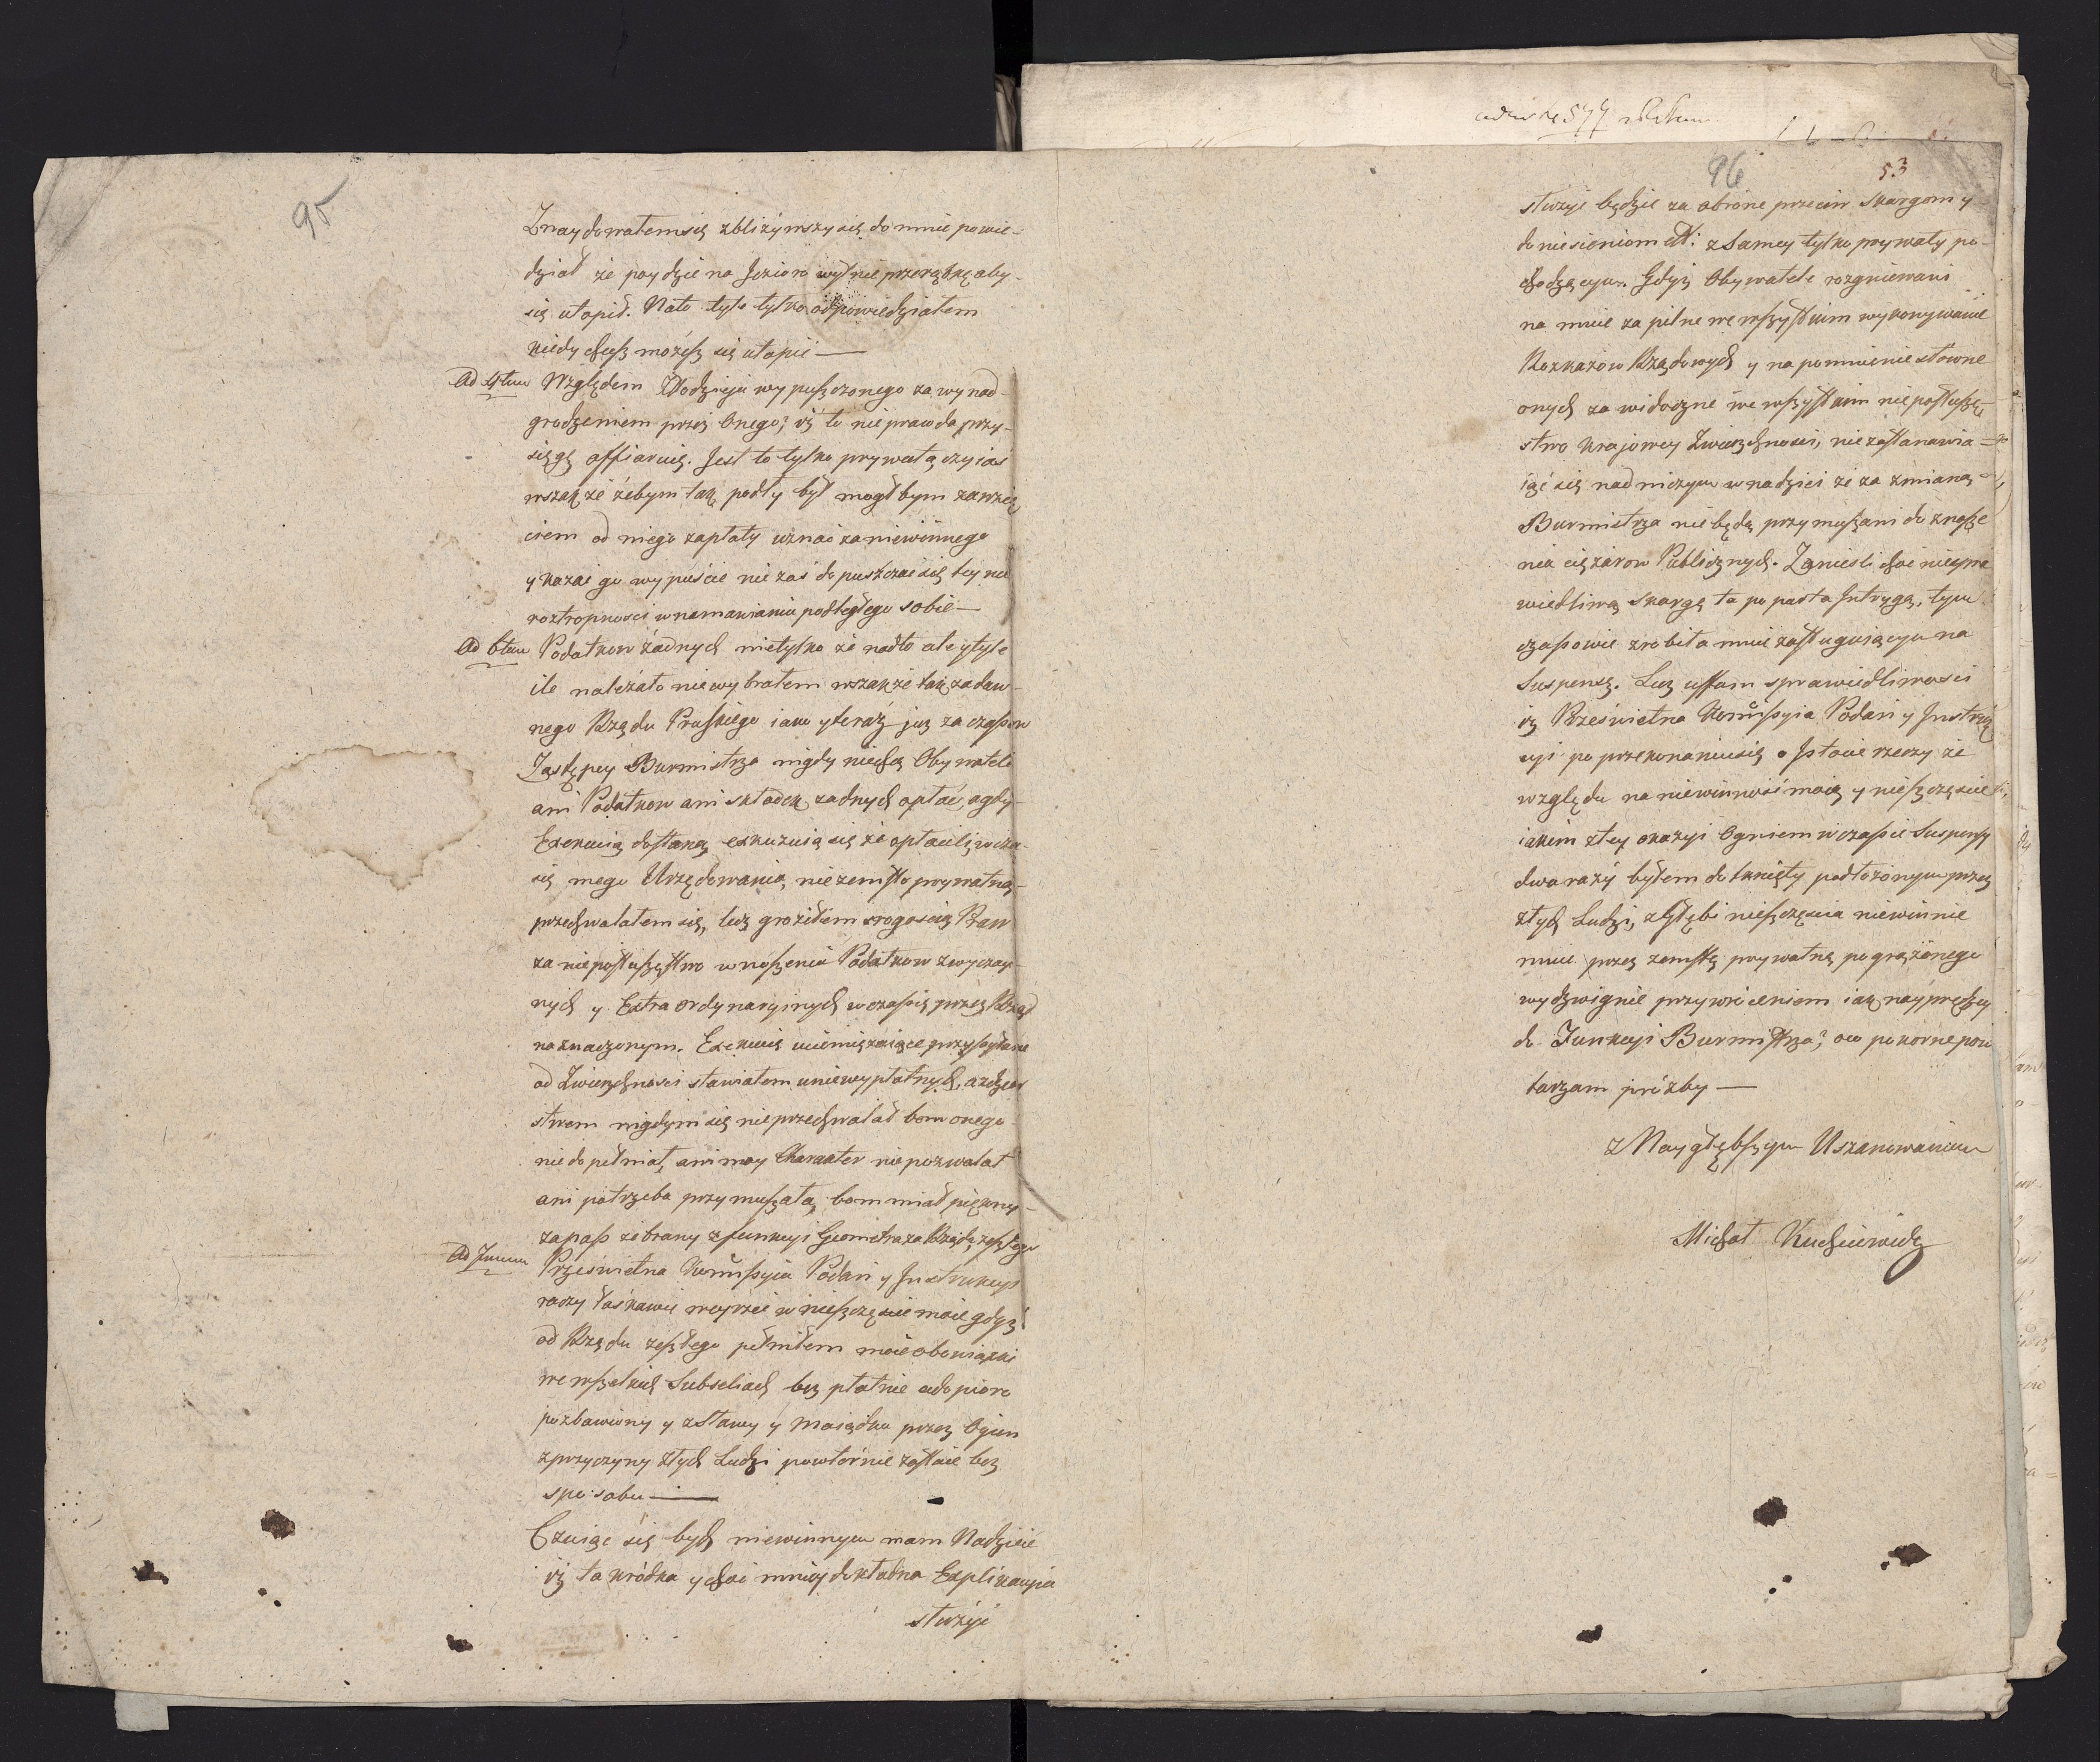 95
Znaydowałem się zbliżywszy się do mnie powie-
dział że poydzie na Jezioro wytnie przerąbkę aby
się utopił. Nato tyle tylko odpowiedziałem
kiedy chcesz możesz się utopić —
Ad 5tum Względem Złodzieja wypuszczonego za wynad-
grodzeniem przez Onego; iż to nieprawda przy-
sięgę offiaruię. Jest to tylko prywatą czyiąś
wszakże żebym tak podły był mogłbym zawzię
ciem od niego zapłaty uznać za niewinnego
y kazać go wypuście nie zaś dopuszczać się tey nie
roztropności w namawianiu podległego sobie —
Ad 6tum Podatkow żadnych nietylko że nadto ale y tyle
ile należało nie wybrałem wszakże tak za daw-
nego Rządu Pruskiego iako y teraz już za czasow
Zastępcy Burmistrza nigdy niechcą Obywatele
ani Podatkow ani składek żadnych opłać, a gdy
Exekucią dostaną exkuzuią się że opłacili w cza-
się mego Urzędowania, nie zemstą prywatną
przechwalałem się, lecz groziłem srogością Praw
za nieposłuszeństwo w noszeniu Podatkow zwyczay-
nych y Extraordynaryinych w czasie przez Rząd
naznaczonym. Exekucie uciemiężaiące przysyłane
od Zwierzchności stawiałem u niewypłatnych, a zdzier
stwem nigdym się nie przechwalał bom onego
nie dopełniał, ani moy Charakter nie pozwalał
ani potrzeba przymuszała, bom miał piękny
zapas zebrany z funkcyi Geometra za Rządu zeszłego
Ad 7mum Prześwietna Kommissyia Podań y Instrukcyi
raczy łaskawie weyrzeć w nieszczęście moie gdyż
od Rządu zeszłego pełniłem moie obowiązki
we wszelkich Subseliach bez płatnie a do piero
pozbawiony y z Sławy y Maiątku przez Ogień
z przyczyny złych Ludzi powtórnie zostaie bez
sposobu —
Czuiąc się bydź niewinnym mam Nadzieie
iż ta krótka y choć mniey dokładna Explikacyia
służyć
96
53
służyć będzie za obronę przeciw Skargom y
doniesieniom z Samey tylko prywaty po-
chodzącym. Gdyż Obywatele rozgniewani
na mnie za pilne we wszystkim wykonywanie
Rozkazow Rządowych y napomnienie słowne
onych za widoczne we wszystkim nieposłusze
stwo Krajowey Zwierzchności, nie zastanawia=
iąc się nad niczym w nadziei że za zmianą
Burmistrza nie będą przymuszani do znosze
nia ciężarow Publicznych. Zanieśli choć niespra
wiedliwą Skargę ta poparta Intrygą, tym
czasowie zrobiła mnie zasługuiącym na
Suspensę. Lecz uffam sprawiedliwości
iż Prześwietna Kommissyia Podań y Instruk
cyi po przekonaniu się o Istocie rzeczy że
względu na niewinność moią y nieszczęście
iakim z tey okazyi Ogniem w czasie Suspensy
dwa razy byłem dotknięty podłożonym przez
złych Ludzi, z głębi nieszczęścia niewinnie
mnie przez zemstę prywatną pogrążonego
wydzwignie przywróceniem iak nayprędszey
do Funkcyi Burmistrza; oco pokorne pow
tarzam prózby —
z Naygłębszym Uszanowaniem
Michał Kuchciewicz